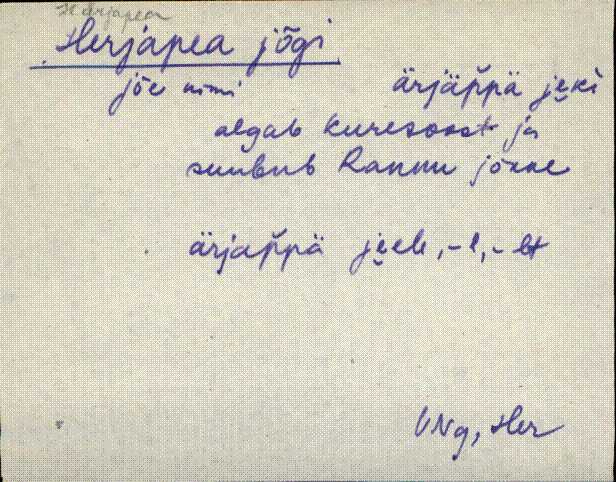 Härjapea
Herjapea jõgi
jõe nimi ärjäp̆pä je̮ki
algab Kuresoost ja
suubub Rannu jõkke
ärjap̆pä je̮ele, -l, -lt
VNg, Her